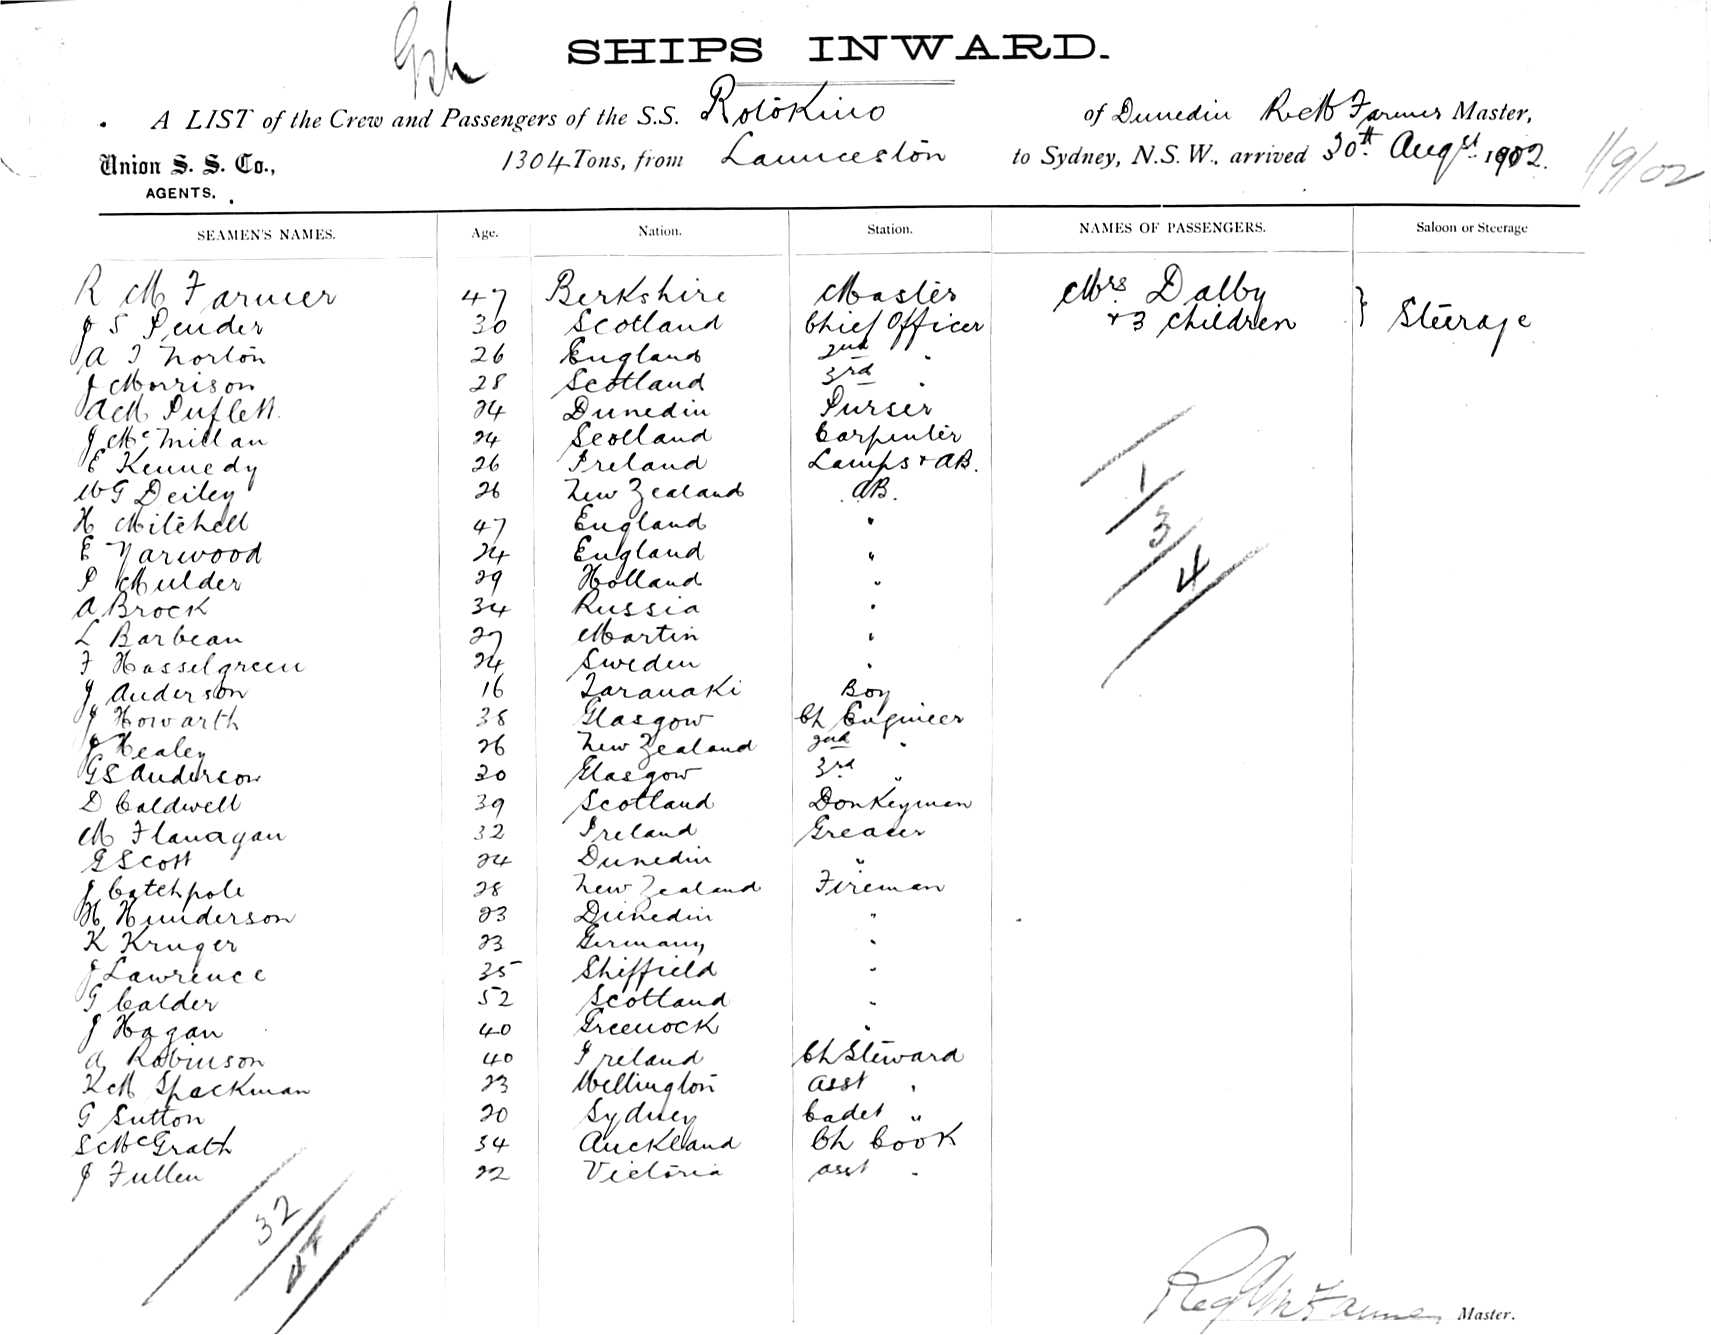 SHIPS INWARD.
A LIST of the Crew and Passengers of the S.S. Rotokino of Dunedin R M Farmer Master,
Union S. S. Co., 1304 Tons, from Launceston to Sydney, N.S.W., arrived 30th Augst 1902. 1/9/02
AGENTS.
SEAMEN'S NAMES. Age. Nation. Station. NAMES OF PASSENGERS. Saloon or Steerage
R M Farmer 47 Berkshire Master Mrs Dalby
J S Pender 30 Scotland Chief Officer + 3 children } Steerage
A T Norton 26 England 2nd "
J Morrison 28 Scotland 3rd "
A M Puflett 24 Dunedin Purser
J McMillan 24 Scotland Carpenter
E Kennedy 26 Ireland Lamps + AB.
W G Deiley 26 New Zealand AB.
H Mitchell 47 England "
E Yarwood 24 England "
P Mulder 29 Holland "
A Brock 34 Russia "
L Barbean 27 Martin "
F Hasselgreen 24 Sweden "
J Anderson 16 Taranaki Boy
J Howarth 38 Glasgow Ch Engineer
J Healey 26 New Zealand 2nd "
G S Anderson 30 Glasgow 3rd "
D Caldwell 39 Scotland Donkeyman
M Flanagan 32 Ireland Greaser
G Scott 24 Dunedin "
J Catchpole 28 New Zealand Fireman
H Hunderson 23 Dunedin "
K Kruger 23 Germany "
J Lawrence 35 Shiffield "
G Calder 52 Scotland "
J Hagan 40 Greenock "
A Robinson 40 Ireland Ch Steward
K M Spackman 23 Wellington asst "
G Sutton 20 Sydney Cadet "
S McGrath 34 Auckland Ch Cook
J Fullen 22 Victoria asst "
1/3/4
32/
Reg M Farmer Master.